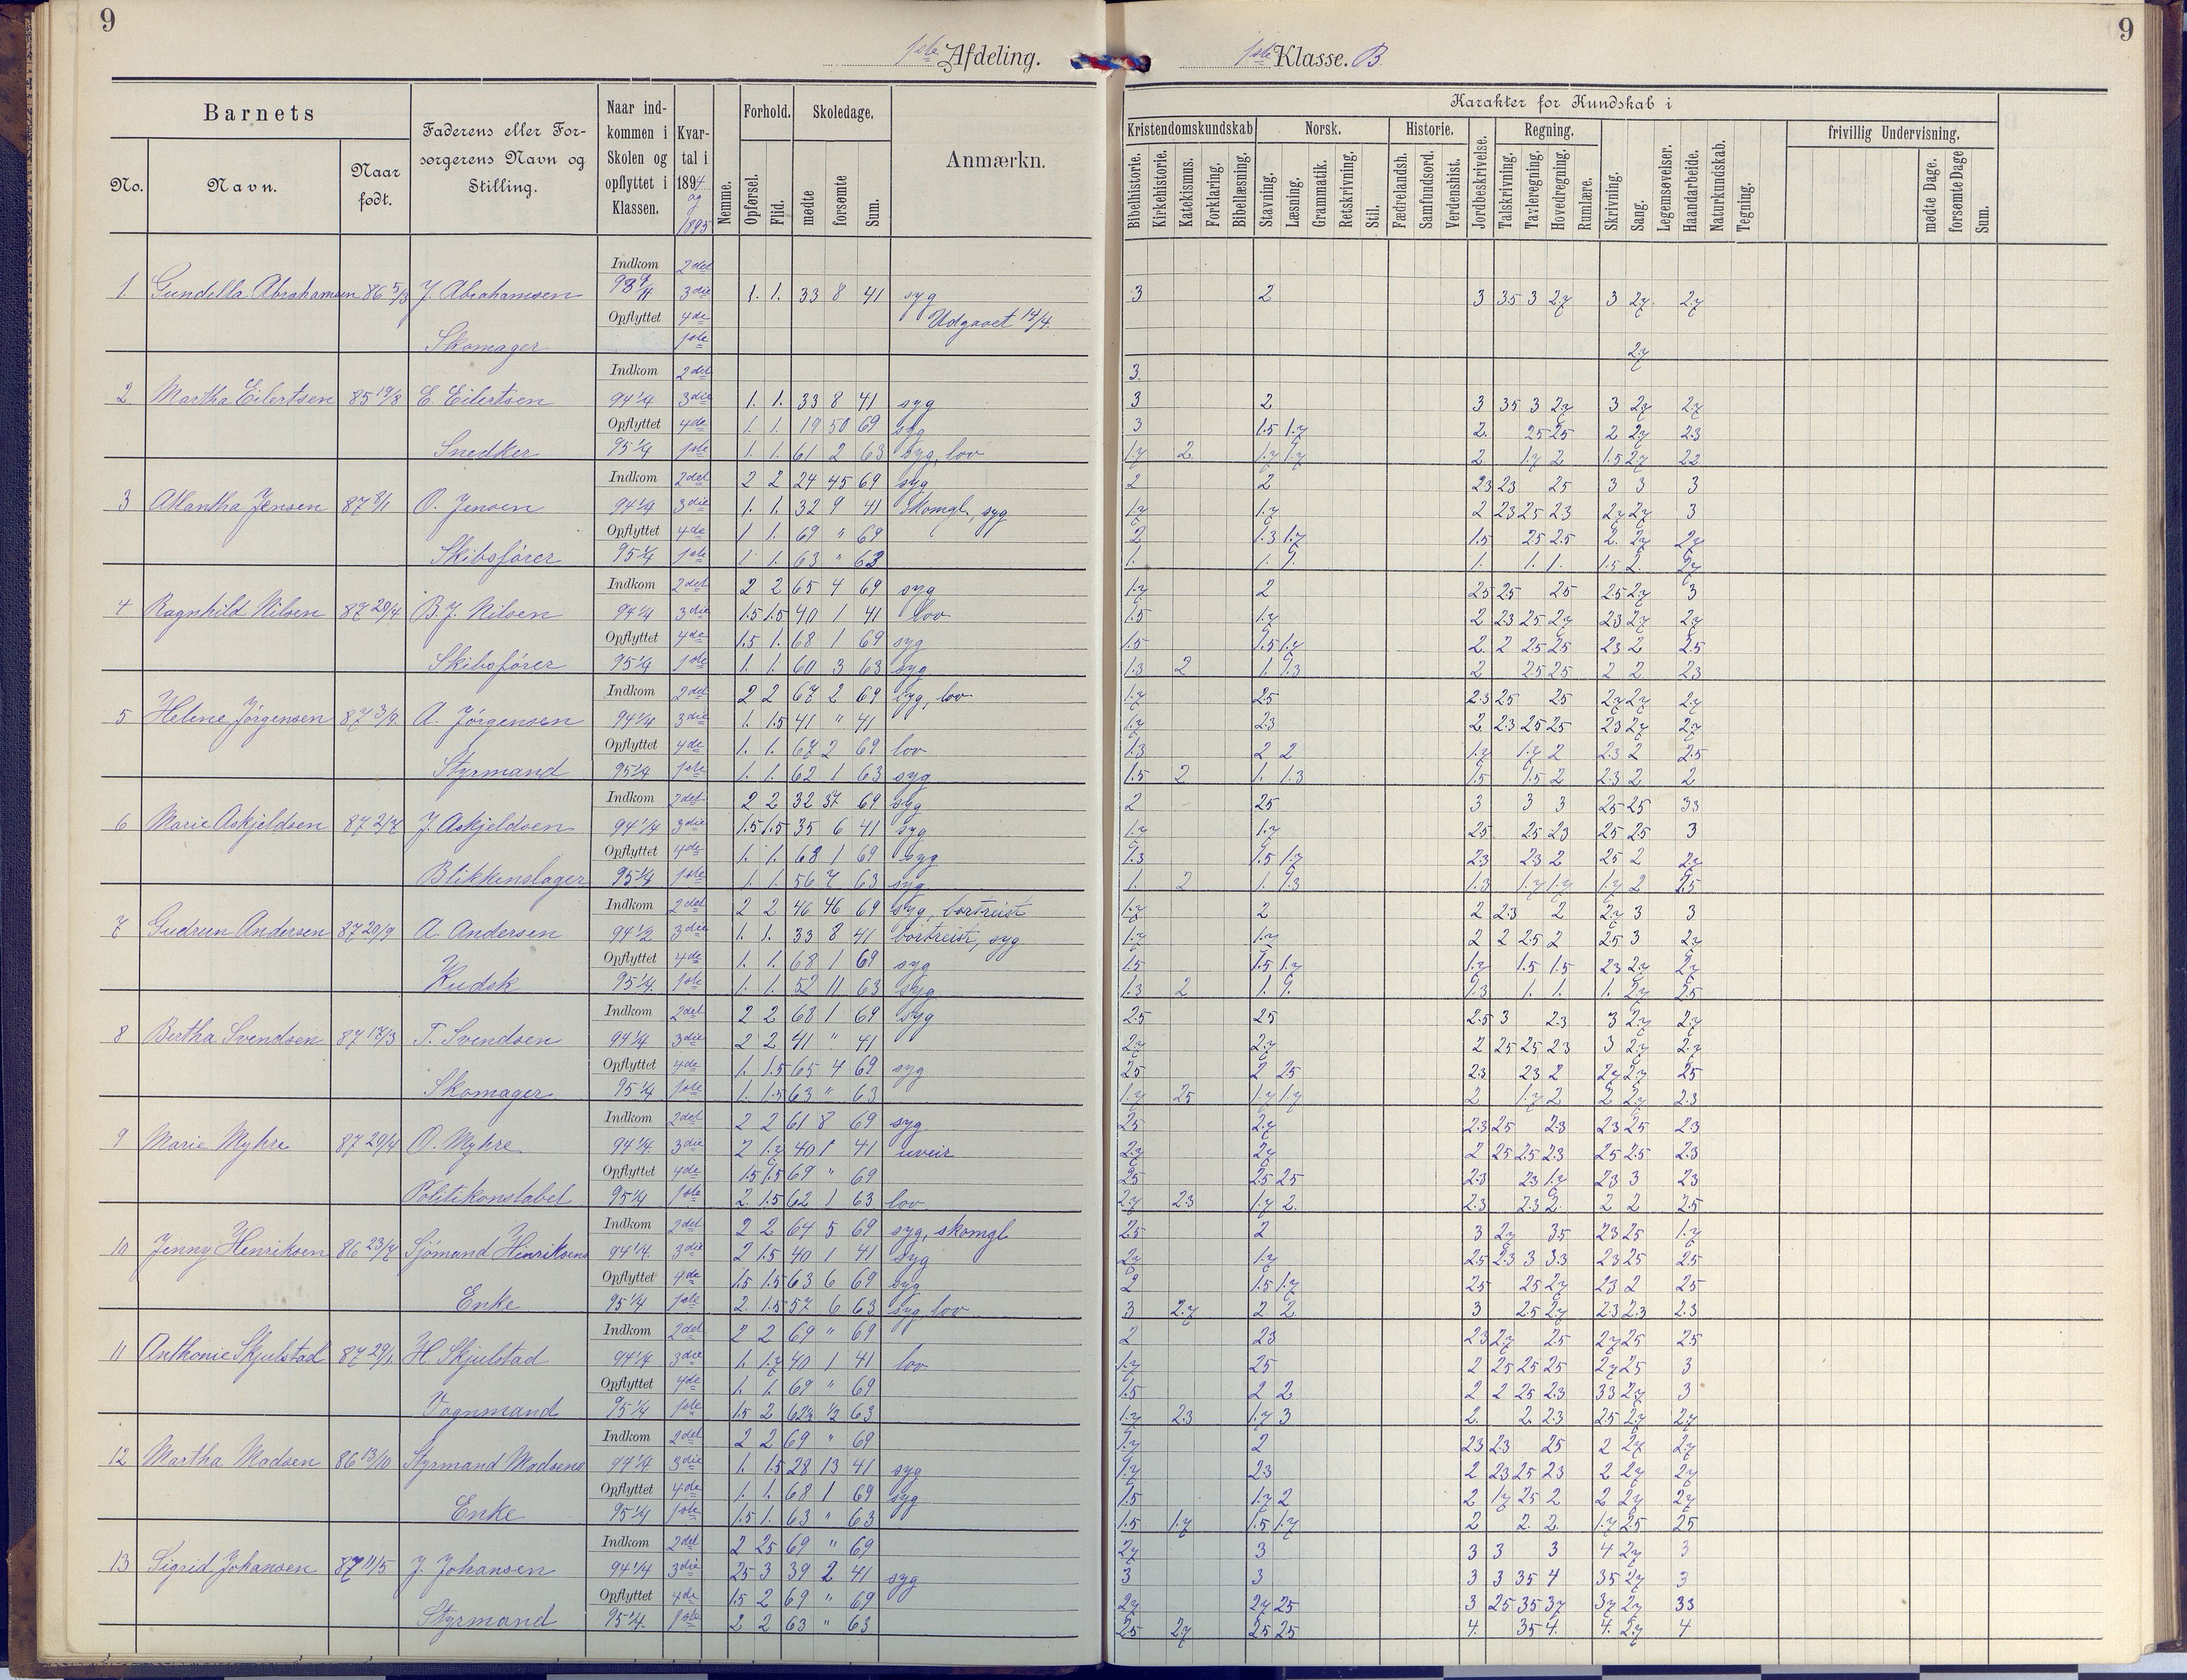 9
9
1ste Afdeling.
1ste Klasse. B.
Barnets
No.
Navn.
Naar født.
Faderens eller Forsorgerens Navn og Stilling.
Naar indkommen i Skolen og opflyttet i Klassen.
Kvartal i 1894 og 1895
Nemme.
Forhold.
Opførsel.
Flid.
Skoledage.
mødte
forsømte
Sum.
Anmærkn.
Karakter for Kundskab i
Kristendomskundskab
Norsk.
Historie.
Regning.
frivillig Undervisning.
Bibelhistorie.
Kirkehistorie.
Katekismus.
Forklaring.
Bibellæsning.
Stavning.
Læsning.
Grammatik.
Retskrivning.
Stil.
Fædrelandsh.
Samfundsord.
Verdenshist.
Jordbeskrivelse.
Talskrivning.
Tavleregning.
Hovedregning.
Rumlære.
Skrivning.
Sang.
Legemsøvelser.
Haandarbeide.
Naturkundskab.
Tegning.
mødte Dage.
forsømte Dage
Sum.
Indkom 2det
1 Gundella Abrahamsen 86 5/3 J. Abrahamsen 3die 1. 1. 33 8 41 syg 3 2 3 35 3 27 3 27 27
Opflyttet 4de Udgaaet 14/4
Skomager 1ste 27
Indkom 2det 3.
2 Martha Eilertsen 85 19/8 E. Eilertsen 94 1/4 3die 1. 1. 33 8 41 syg 3 2 3 35 3 27 3 27 27
Opflyttet 4de 1. 1. 19 50 69 syg 3 1.5 1.7 2. 25 25 2 27 23
Snedker 95 1/4 1ste 1. 1. 61 2 63 syg, lov 1.7 2. 1.7 1.7 2 1.7 2 1.5 27 22
Indkom 2det 2 2 24 45 69 syg 2 2 23 23 25 3 3 3
3 Alantha Jensen 87 8/1 O. Jensen 94 1/4 3die 1. 1. 32 9 41 Skomgl, syg 1.7 1.7 2 23 25 23 27 27 3
Opflyttet 4de 1 1. 69 " 69 2 1.3 1.7 1.5 25 25 2. 27 27
Skibsfører 95 1/4 1ste 1 1. 63 " 63 1. 1. 1. 1. 1. 1. 1.5 2. 27
Indkom 2det 2 2 65 4 69 syg 1.7 2 25 25 25 25 27 3
4 Ragnhild Nilsen 87 20/4 B. J. Nilsen 94 1/4 3die 1.5 1.5 40 1 41 lov 1.5 1.7 2 23 25 27 23 27 27
Opflyttet 4de 1.5 1. 68 1 69 syg 1.5 1.5 1.7 2. 2 25 25 23 2 25
Skibsfører 95 1/4 1ste 1. 1. 60 3 63 syg 1.3 2 1. 1.3 2 25 25 2 2 23
Indkom 2det 2 2 67 2 69 syg, lov 1.7 25 23 25 25 27 27 27
5 Helene Jørgensen 87 3/9. A. Jørgensen 94 1/4 3die 1. 1.5 41 " 41 1.7 23 2. 23 25 25 23 27 27
Opflyttet 4de 1. 1. 67 2 69 lov 1.3 2 2 1.7 1.7 2 23 2 25
Styrmand 95 1/4 1ste 1. 1. 62 1 63 syg 1.5 2 1. 1.3 1.5 1.5 2 23 2 2
Indkom 2det 2 2 32 37 69 syg 2 25 3 3 3 25 25 33
6 Marie Askjeldsen 87 2/7 J. Askjeldsen 94 1/4 3die 1.5 1.5 35 6 41 syg 1.7 1.7 25 25 23 25 25 3
Opflyttet 4de 1. 1. 68 1 69 syg 1.3 1.5 1.7 23 23 2 25 2 27
Blikkenslager 95 1/4 1ste 1. 1. 56 7 63 syg 1. 2 1. 1.3 1.3 1.7 1.7 1.7 2 25
Indkom 2det 2 2 46 46 69 syg, bortreist 1.7 2 2 23 2 27 3 3
7 Gudrun Andersen 87 20/9 A. Andersen 94 1/2 3die 1. 1. 33 8 41 bortreist, syg 1.7 1.7 2 2 25 2 25 3 27
Opflyttet 4de 1. 1. 68 1 69 syg 1.5 1.5 1.7 1.7 1.5 1.5 23 27 27
Kudsk 95 1/4 1ste 1. 1. 52 11 63 syg 1.3 2 1. 1. 1.3 1. 1. 1. 27 25
Indkom 2det 2 2 68 1 69 syg 25 25 25 3 23 3 27 27
8 Bertha Svendsen 87 17/3 T. Svendsen 94 1/4 3die 2 2 41 " 41 27 27 2 25 25 23 3 27 27
Opflyttet 4de 1. 1.5 65 4 69 syg 25 2 25 23 23 2 27 27 25
Skomager 95 1/4 1ste 1. 1.5 63 " 63 1.7 25 1.7 1.7 2 1.7 2 2 27 23
Indkom 2det 2 2 61 8 69 syg 25 27 23 25 23 23 25 23
9 Marie Myhre 87 20/4 O. Myhre 94 1/4 3die 2 1.7 40 1 41 uveir 27 27 2 25 25 23 25 25 23
Opflyttet 4de 1.5 1.5 69 " 69 25 25 25 23 23 1.7 23 3 23
Politikonstabel 95 1/4 1ste 2. 1.5 62 1 63 lov 27 23 1.7 2. 23 23 2. 2 2 25
Indkom 2det 2 2 64 5 69 syg, skomgl 25 2 3 27 35 23 25 1.7
10 Jenny Henriksen 86 23/7 Sjømand Henriksens 94 1/4 3die 2 1.5 40 1 41 syg 27 1.7 25 23 3 33 23 25 25
Opflyttet 4de 1.5 1.5 63 6 69 syg 2 1.5 1.7 25 25 27 23 2 25
Enke 95 1/4 1ste 2. 1.5 57 6 63 syg lov 3 27 2 2 3 25 27 23 23 23
Indkom 2det 2 2 69 " 69 2 23 23 27 25 27 25 25
11 Anthonie Skjulstad 87 29/1 H. Skjulstad 94 1/4 3die 1. 1.7 40 1 41 lov 1.7 25 2 25 25 25 27 25 3
Opflyttet 4de 1. 1. 69 " 69 1.5 2 2 2 2 25 23 33 27 3
Vognmand 95 1/4 1ste 1.5 2 62½ ½ 63 1.7 23 1.7 3 2. 2. 23 25 27 27
Indkom 2det 2 2 69 " 69 1.7 2 23 23 25 2 27 27
12 Martha Madsen 86 13/10 Styrmand Madsens 94 1/4 3die 1. 1.5 28 13 41 syg 1.7 23 2 23 25 23 2 27 27
Opflyttet 4de 1. 1. 68 1 69 syg 1.5 1.7 2 2 1.7 25 2 2 27 27
Enke 95 1/4 1ste 1.5 1. 63 " 63 1.5 1.7 1.5 1.7 2 2. 2. 1.7 25 25
Indkom 2det 2 25 69 " 69 27 3 3 3 3 4 27 3
13 Sigrid Johansen 87 11/5 J. Johansen 94 1/4 3die 25 3 39 2 41 syg 3 3 3 3 35 4 35 27 3
Opflyttet 4de 1.5 2 69 " 69 27 27 25 3 25 35 37 37 27 33
Styrmand 95 1/4 1ste 2 2 63 " 63 25 27 25 25 4. 35 4. 4. 27 4